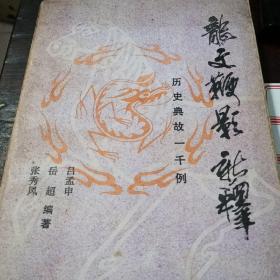 龍文鞭影新釋
历史典故一千例
吕孟申
岳超
张秀凤
编著